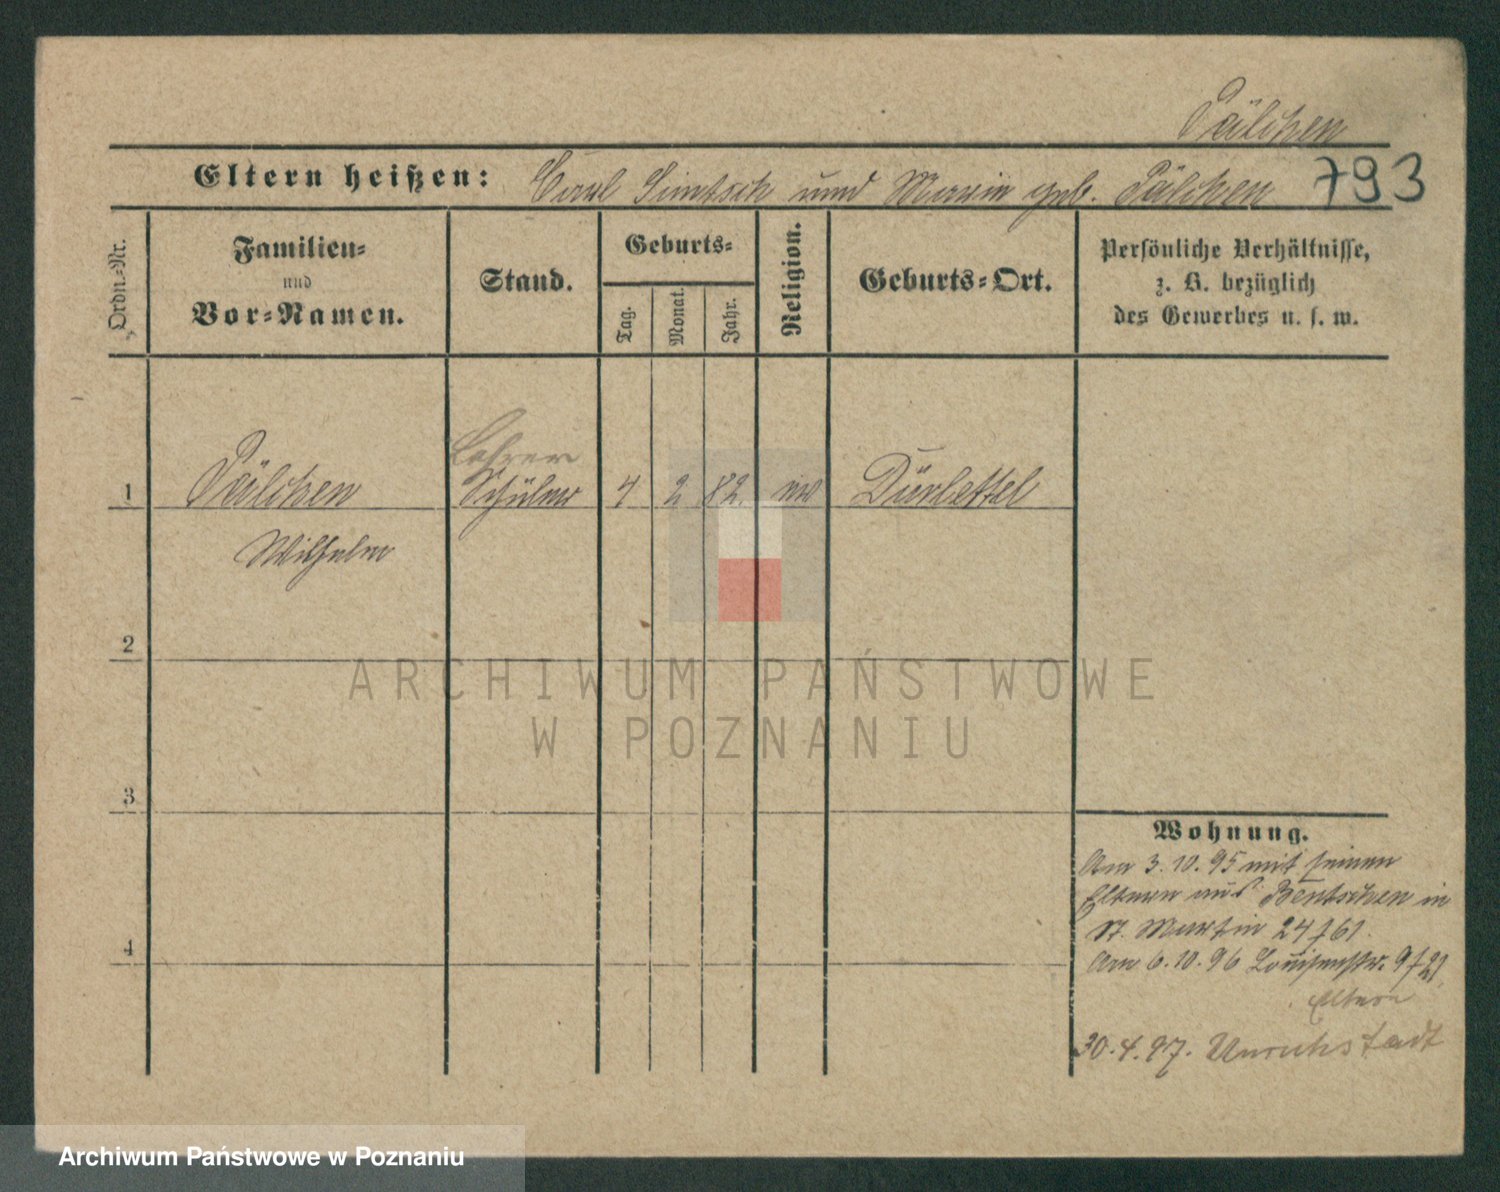 Pälchen
Eltern heißen: Carl Simtsch und Marie geb. Pälchen 793
Ordn.-Nr.
Familien-
und
Vor-Namen.
Stand.
Geburts-
Tag.
Monat.
Jahr.
Religion.
Geburts-Ort.
Persönliche Verhältnisse,
z. B. bezüglich
des Gewerbes u. s. w.
Lehrer
1 Pälchen Schüler 4 2 82. ev Dürlettel
Wilhelm
2
3
4
Wohnung.
Am 3.10.95 mit seinen
Eltern aus Bentschen in
St. Martin 24/61.
Am 6.10.96 Louisenstr. 9/21
Eltern
30.4.97. Unruhstadt
ARCHIWUM PAŃSTWOWE
W POZNANIU
Archiwum Państwowe w Poznaniu